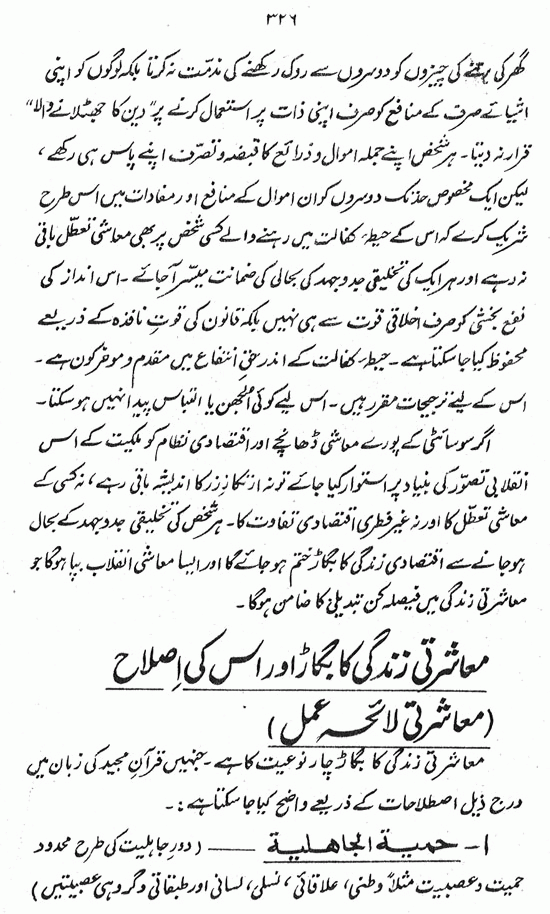 ۳۲۶
گھر کی برتنے کی چیزوں کو دوسروں سے روک رکھنے کی مذمت نہ کرتا بلکہ لوگوں کو اپنی
اشیائے صرف کے منافع کو صرف اپنی ذات پر استعمال کرنے پر "دین کا جھٹلانے والا"
قرار نہ دیتا۔ ہر شخص اپنے جملہ اموال و ذرائع کا قبضہ و تصرف اپنے پاس ہی رکھے،
لیکن ایک مخصوص حد تک دوسروں کو ان اموال کے منافع اور مفادات میں اس طرح
شریک کرے کہ اس کے حیطۂ کفالت میں رہنے والے کسی شخص پر بھی معاشی تعطل باقی
نہ رہے اور ہر ایک کی تخلیقی جدوجہد کی بحالی کی ضمانت میسّر آجائے۔ اس انداز کی
نفع بخشی کو صرف اخلاقی قوت سے ہی نہیں بلکہ قانون کی قوتِ نافذہ کے ذریعے
محفوظ کیا جا سکتا ہے۔ حیطۂ کفالت کے اندر حقِ انتفاع میں مقدم و موخر کون ہے۔
اس کے لیئے ترجیحات مقرر ہیں۔ اس لیے کوئی الجھن یا التباس پیدا نہیں ہو سکتا۔
اگر سوسائٹی کے پورے معاشی ڈھانچے اور اقتصادی نظام کو ملکیت کے اس
انقلابی تصوّر کی بنیاد پر استوار کیا جائے تو نہ ارتکازِ زر کا اندیشہ باقی رہے، نہ کسی کے
معاشی تعطل کا اور نہ غیر فطری اقتصادی تفاوت کا۔ ہر شخص کی تخلیقی جدوجہد کے بحال
ہو جانے سے اقتصادی زندگی کا بگاڑ ختم ہو جائے گا اور ایسا معاشی انقلاب بپا ہوگا جو
معاشرتی زندگی میں فیصلہ کن تبدیلی کا ضامن ہوگا۔
معاشرتی زندگی کا بگاڑ اور اس کی اِصلاح
(معاشرتی لائحہ عمل)
معاشرتی زندگی کا بگاڑ چار نوعیت کا ہے۔ جنہیں قرآنِ مجید کی زبان میں
درج ذیل اصطلاحات کے ذریعے واضح کیا جا سکتا ہے:۔
۱- حمیة الجاهلیة —— (دورِ جاہلیت کی طرح محدود
حمیت و عصبیت مثلاً وطنی، علاقائی، نسلی، لسانی اور طبقاتی و گروہی عصبیتیں)